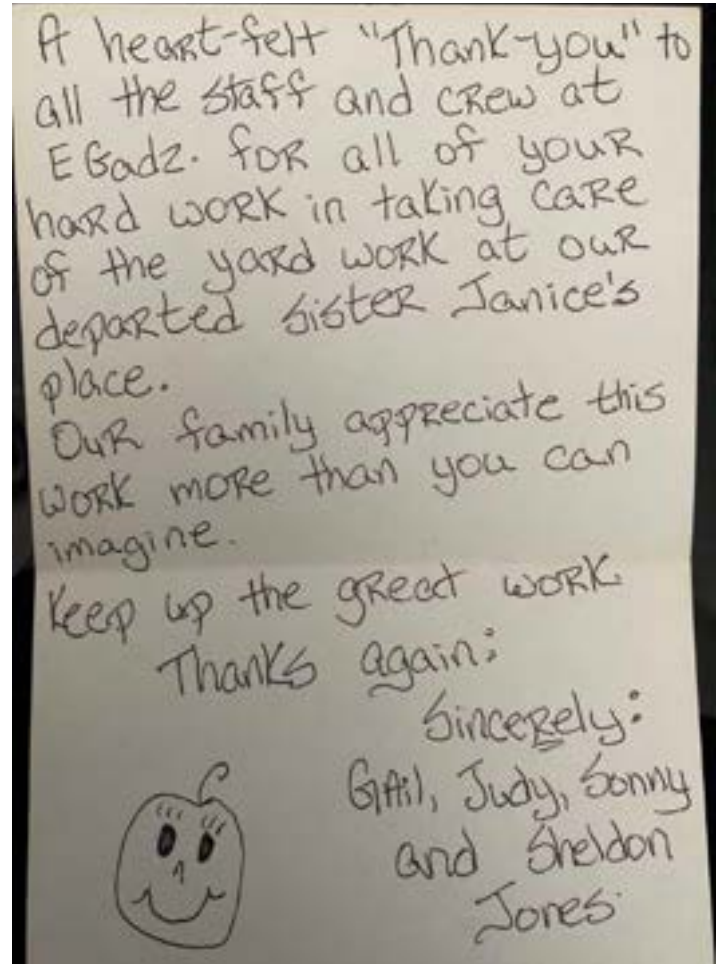 A heart-felt "Thank-you" to
all the staff and crew at
EGadz. for all of your
hard work in taking care
of the yard work at our
departed sister Janice's
place.
Our family appreciate this
work more than you can
imagine.
Keep up the great work
Thanks again:
Sincerely:
GAil, Judy, Sonny
and Sheldon
Jones.